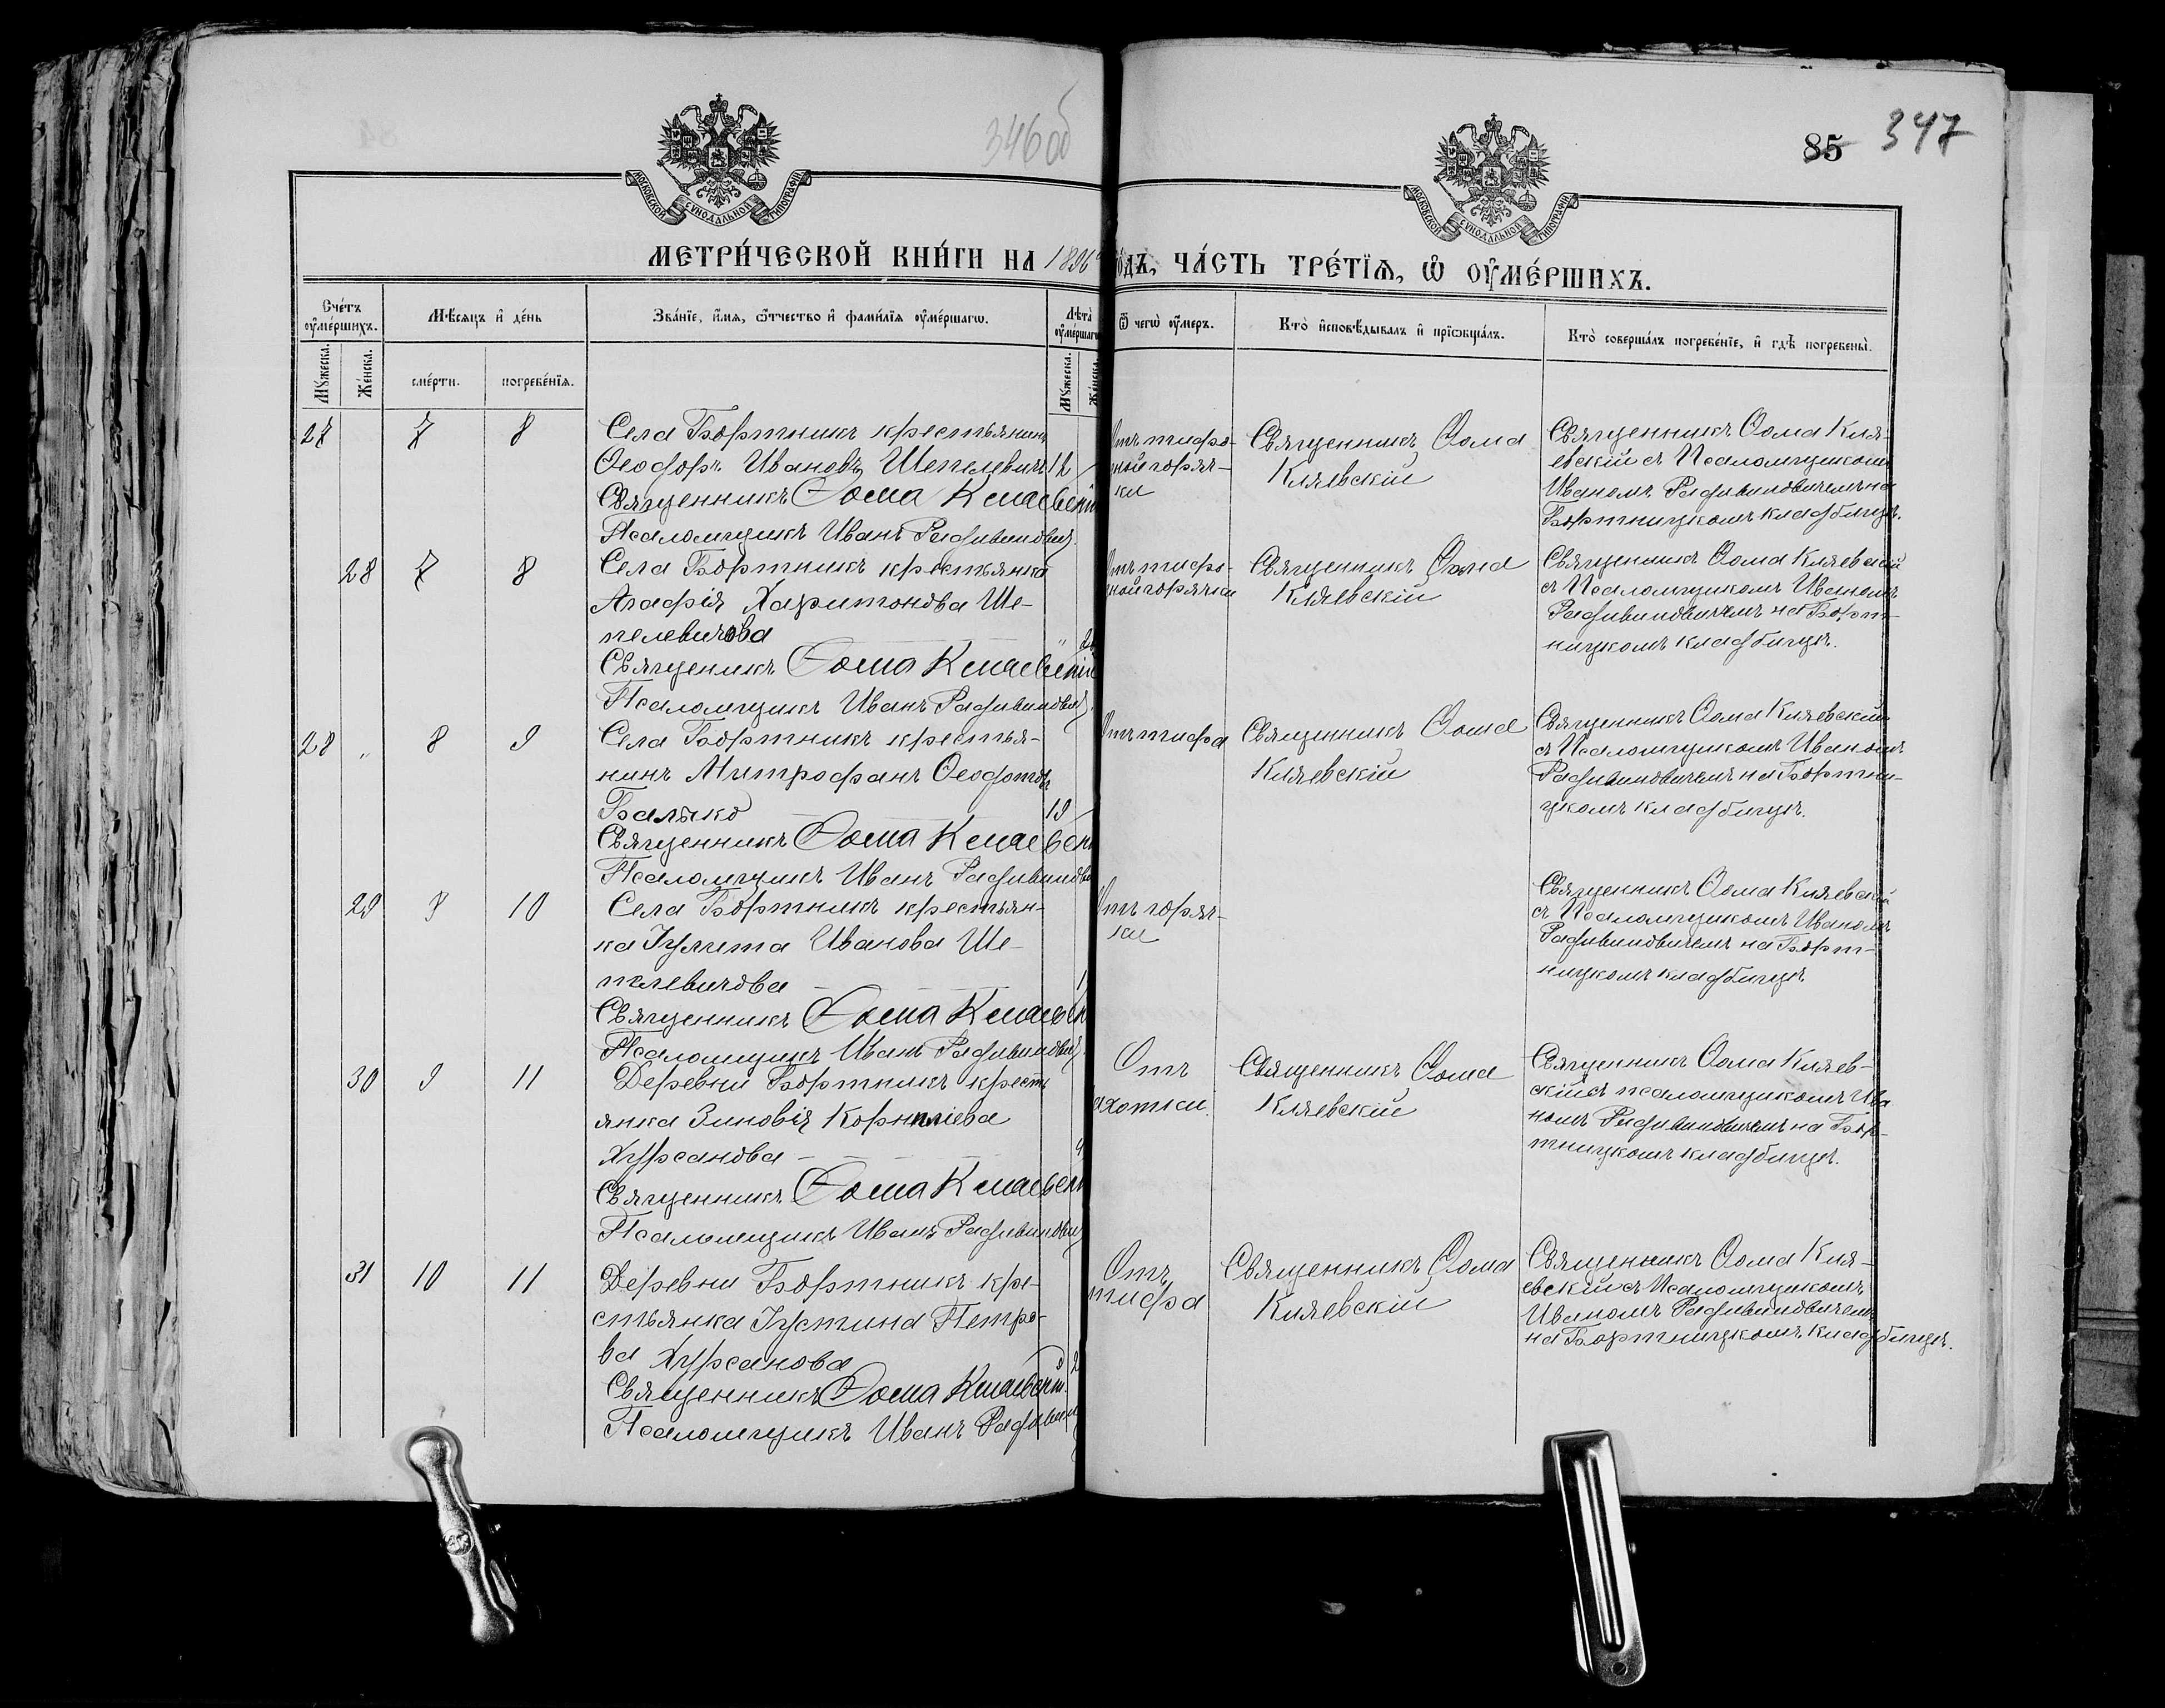 346об
85 347
МОСКОВСКОЙ СУНОДАЛЬНОЙ ТИПОГРАФІИ
МОСКОВСКОЙ СУНОДАЛЬНОЙ ТИПОГРАФІИ
МЕТРИ́ЧЕСКОЙ КНИ́ГИ НА 1896
го́дъ, ЧА́СТЬ ТРЕ́ТІѦ, Ѡ҆ ОУ҆МЕ́РШИХЪ.
Сче́тъ оу҆ме́ршихъ.
Мѣ́сяцъ и҆ де́нь
Зва́нїе, и҆́мѧ, ѻ҆́тчество и҆ фами́лїѧ оу҆ме́ршагѡ.
Лѣта̀ оу҆ме́ршагѡ
Ѿ чегѡ̀ оу҆́меръ.
Кто̀ и҆сповѣ́дывалъ и҆ прїѡбща́лъ.
Кто̀ соверша́лъ погребе́нїе, и҆ гдѣ̀ погребены̀.
Мꙋ́жеска.
Же́нска.
сме́рти.
погребе́нїѧ.
Мꙋ́жеска.
Же́нска.
27 7 8
Села Бортникъ крестьянинъ
Ѳеодоръ Ивановъ Шепелевичъ 12
Священникъ Ѳома Кляевскій
Псаломщикъ Иванъ Радивиновичъ
Отъ тифо-
зной горяч-
ки
Священникъ Ѳома
Кляевскій
Священникъ Ѳома Кля-
евскій съ Псаломщикомъ
Иваномъ Радивиновичемъ на
Бортницкомъ кладбищѣ.
28 7 8
Села Бортникъ крестьянка
Агафія Харитонова Ше-
пелевичова
Священикъ Ѳома Кляевскій
Псаломщикъ Иванъ Радивиновичъ
Отъ тифо-
зной горячки
Священникъ Ѳома
Кляевскій
Священникъ Ѳома Кляевскій
съ Псаломщикомъ Иваномъ
Радивиновичемъ на Борт-
ницкомъ кладбищѣ.
28 " 8 9
Села Бортникъ крестья-
нинъ Митрофанъ Ѳеодотовъ
Балыко 19
Священникъ Ѳома Кляевскій
Псаломщикъ Иванъ Радивинов
Отъ тифа
Священникъ Ѳома
Кляевскій
Священникъ Ѳома Кляевскій
съ Псаломщикомъ Иваномъ
Радивиновичемъ на Бортни-
цкомъ кладбищѣ.
29 9 10
Села Бортникъ крестьян-
ка Іулита Иванова Ше-
пелевичова 1
Священникъ Ѳома Кляевск
Псаломщикъ Иванъ Радивиновичъ
Отъ горяч-
ки
Священникъ Ѳома Кляевскій
съ Псаломщикомъ Иваномъ
Радивиновичемъ на Борт-
ницкомъ кладбищѣ
30 9 11
Деревни Бортникъ кресть
янка Зиновія Корниліева
Хурсанова 4
Священникъ Ѳома Кляевск
Псаломщикъ Иванъ Радивинович
Отъ
чахотки.
Священникъ Ѳома
Кляевскій
Священникъ Ѳома Кляев-
скій съ псаломщикомъ Ива
номъ Радивиновичемъ на Бор-
тницкомъ кладбищѣ.
31 10 11
Деревни Бортникъ кре-
стьянка Іустина Петро-
ва Хурсанова 2
Священникъ Ѳома Кляевскій
Псаломщикъ Иванъ Радивин
Отъ
тифа
Священникъ Ѳома
Кляевскій
Священникъ Ѳома Кля-
евскій съ Псаломщикомъ
Иваномъ Радивиновичемъ
на Бортницкомъ кладбищѣ.